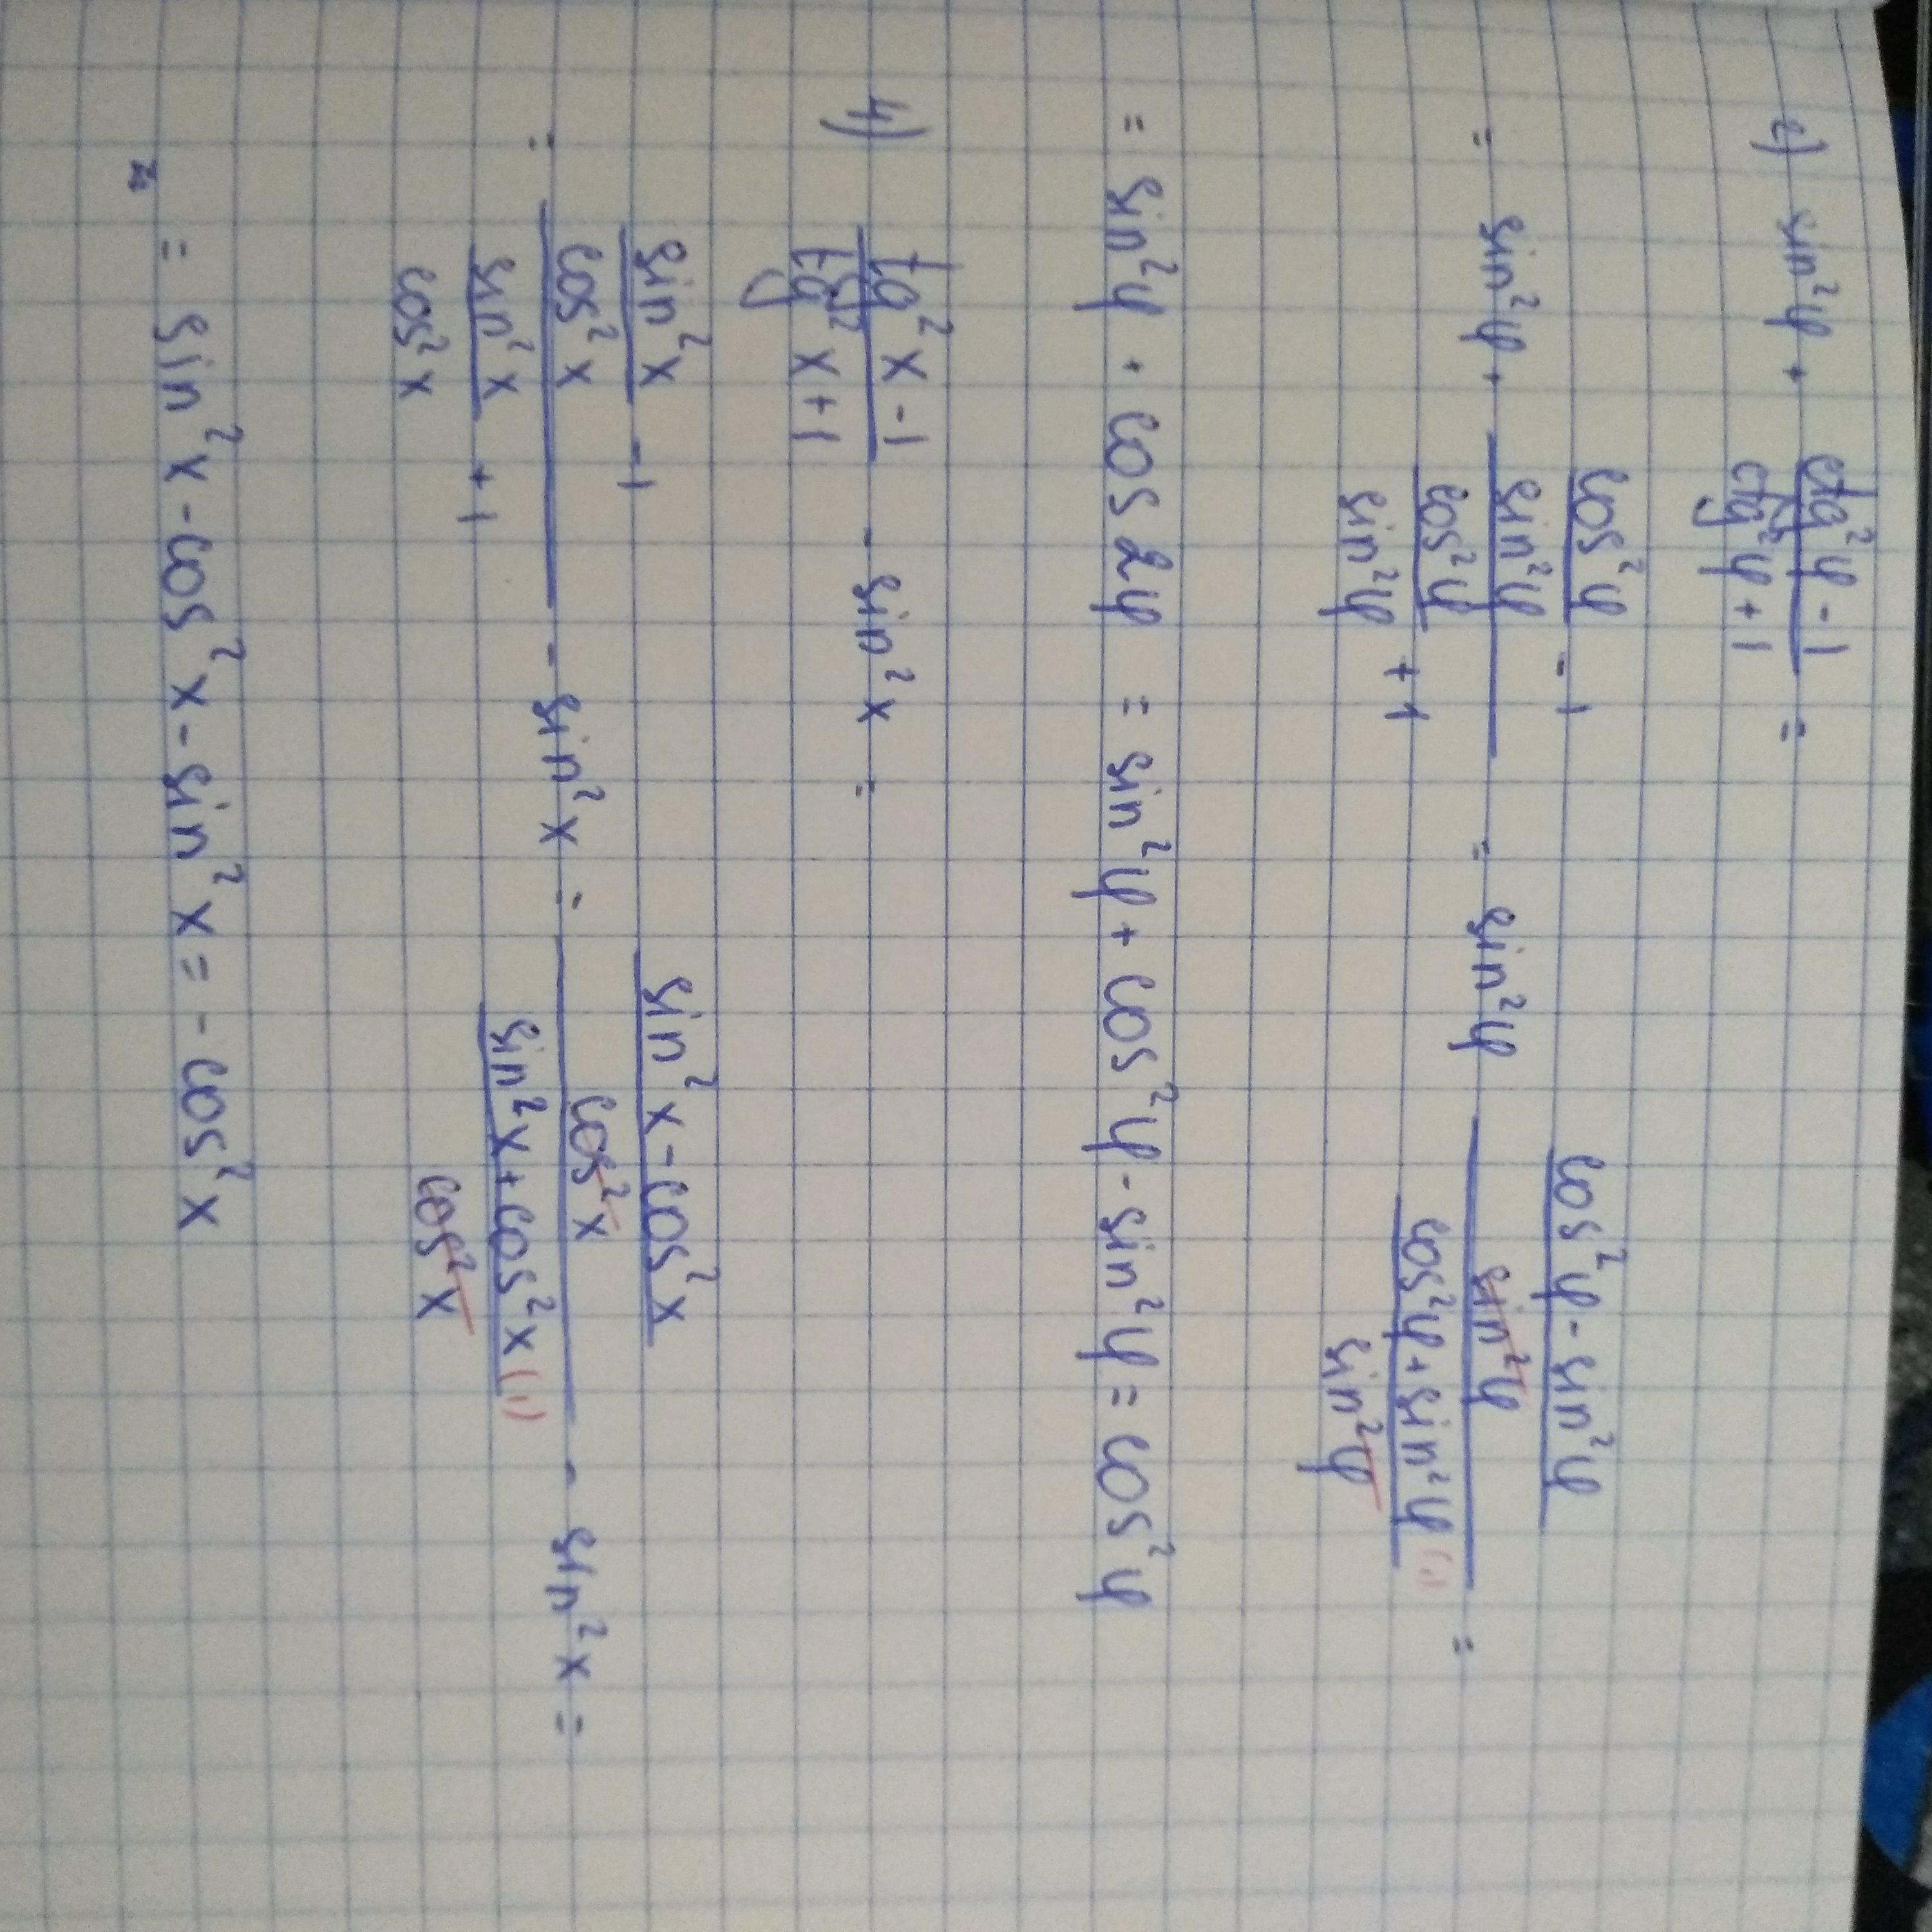 2) sin²φ + (ctg²φ - 1)/(ctg²φ + 1) =
= sin²φ + (cos²φ/sin²φ - 1)/(cos²φ/sin²φ + 1) = sin²φ ((cos²φ - sin²φ)/sin²φ)/((cos²φ + sin²φ (1))/sin²φ) =
= sin²φ + cos2φ = sin²φ + cos²φ - sin²φ = cos²φ
4) (tg²x - 1)/(tg²x + 1) - sin²x =
= (sin²x/cos²x - 1)/(sin²x/cos²x + 1) - sin²x = ((sin²x - cos²x)/cos²x)/((sin²x + cos²x (1))/cos²x) - sin²x =
= sin²x - cos²x - sin²x = - cos²x